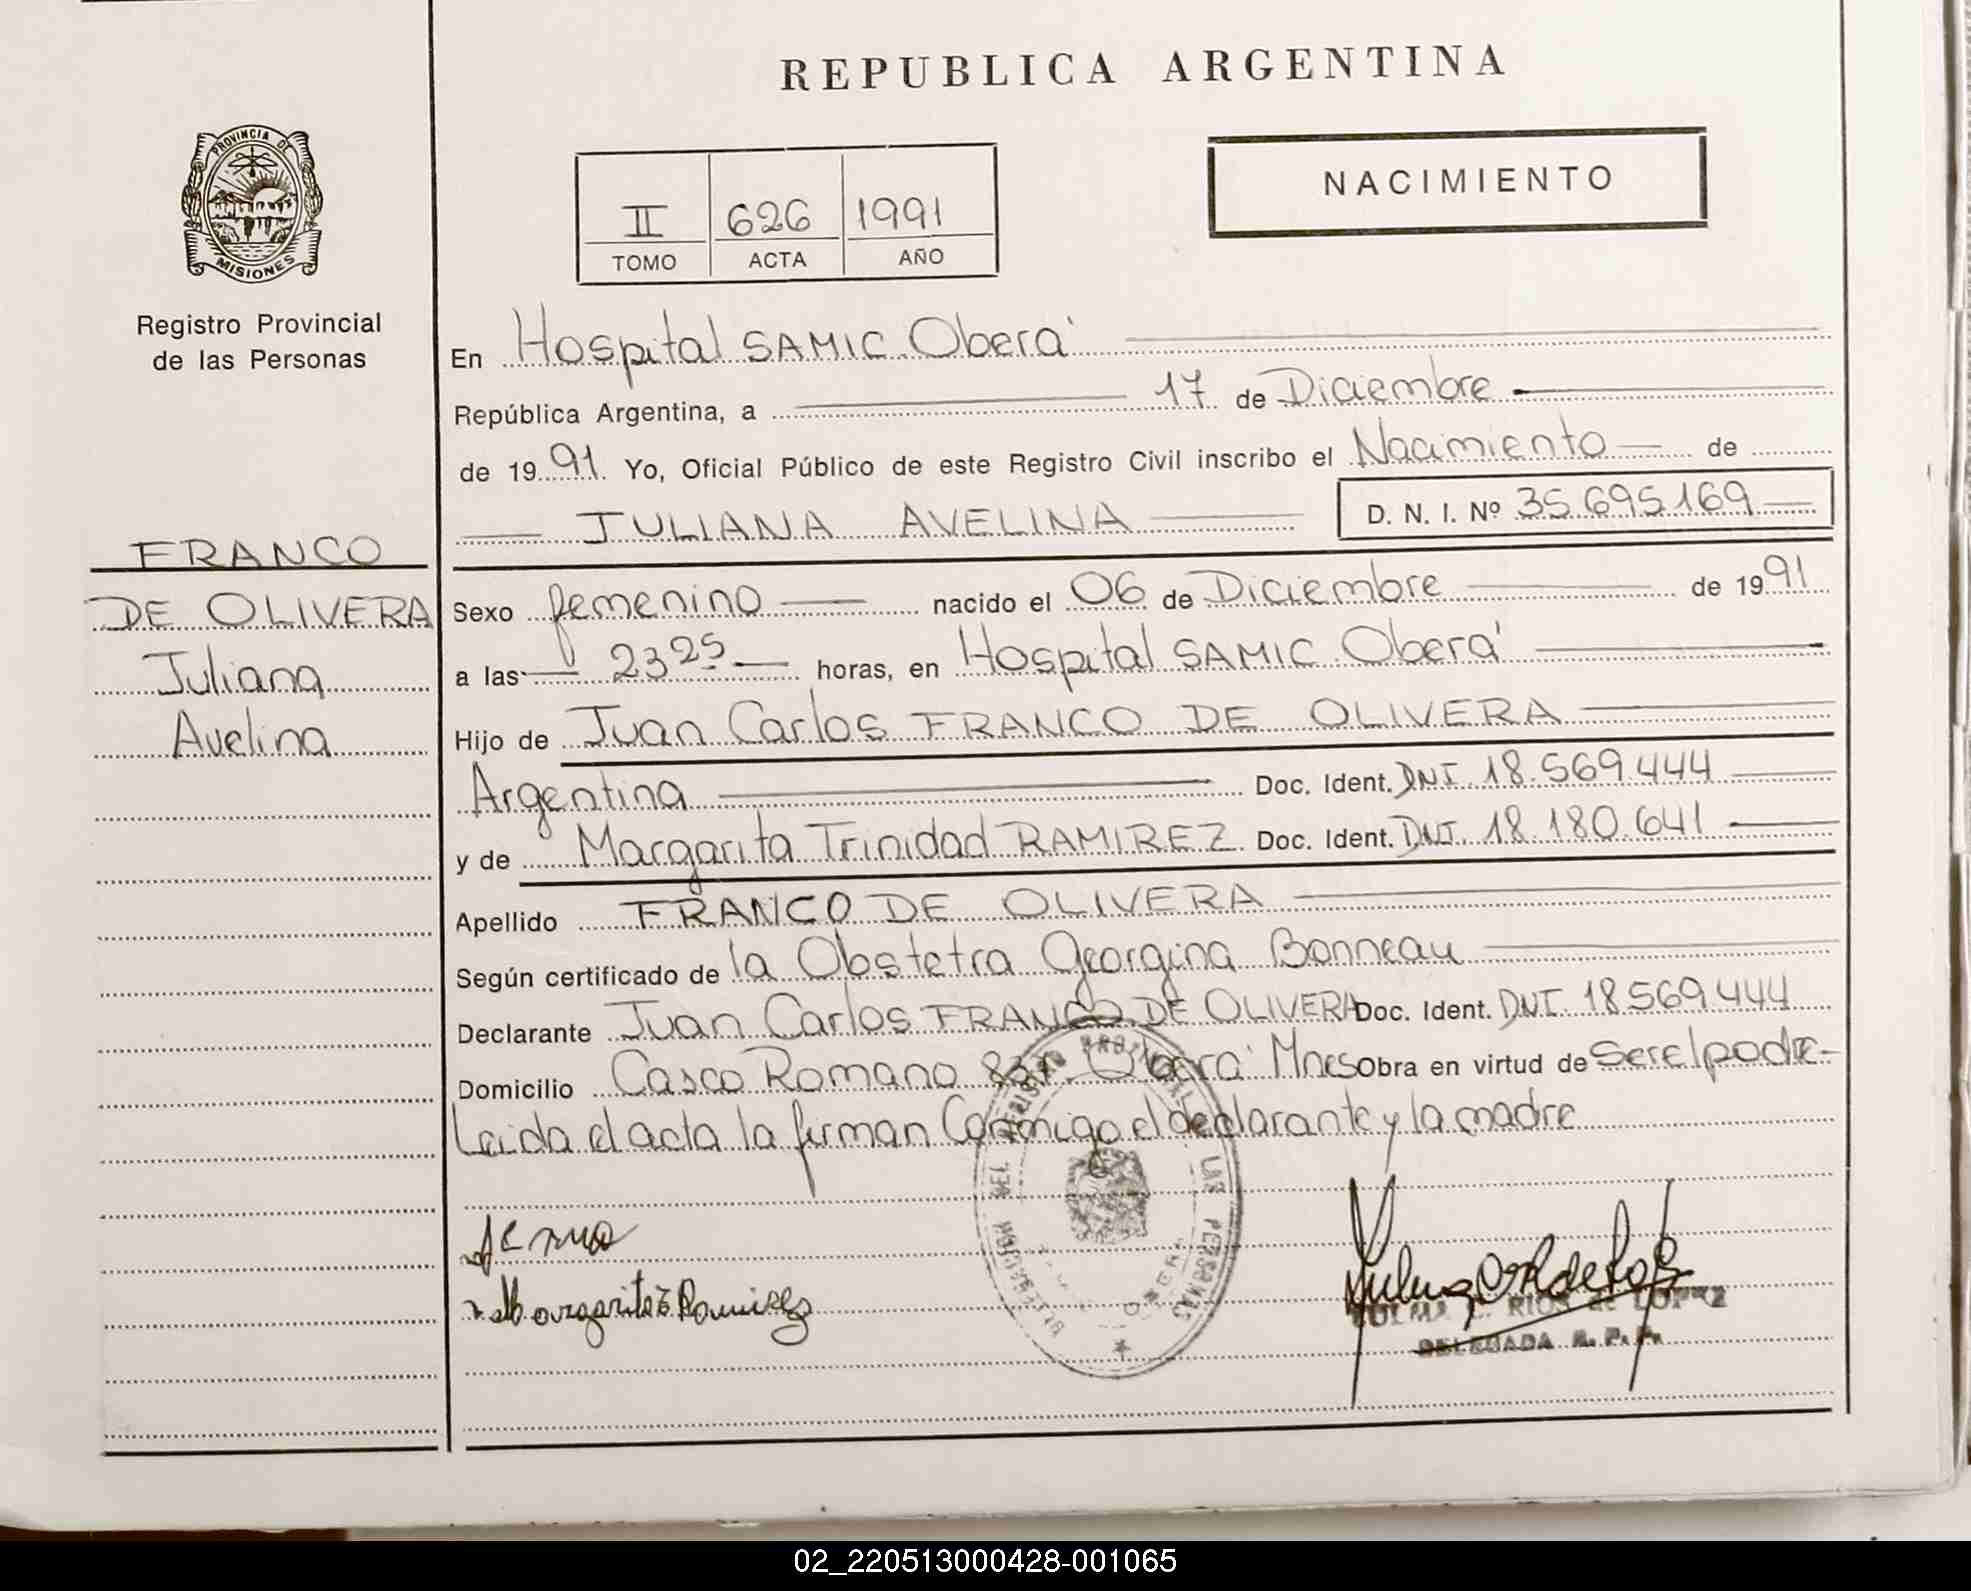 REPUBLICA ARGENTINA
PROVINCIA DE
MISIONES
Registro Provincial
de las Personas
II 626 1991
TOMO ACTA AÑO
NACIMIENTO
FRANCO
DE OLIVERA
Juliana
Avelina
En Hospital SAMIC Oberá
República Argentina, a 17 de Diciembre
de 1991 Yo, Oficial Público de este Registro Civil inscribo el Nacimiento de
JULIANA AVELINA D. N. I. Nº 35.695.169
Sexo femenino nacido el 06 de Diciembre de 1991
a las 23 25 horas, en Hospital SAMIC Oberá
Hijo de Juan Carlos FRANCO DE OLIVERA
Argentina Doc. Ident. DNI. 18.569.444
y de Margarita Trinidad RAMIREZ Doc. Ident. DNI. 18.180.641
Apellido FRANCO DE OLIVERA
Según certificado de la Obstetra Georgina Bonneau
Declarante Juan Carlos FRANCO DE OLIVERA Doc. Ident. DNI. 18.569.444
Domicilio Casco Romano Oberá Mnes Obra en virtud de Ser el padre
Leida el acta la firman Conmigo el declarante y la madre
Margarita Ramirez
RIOS de LOPEZ
DELEGADA R. P. P.
02_220513000428-001065